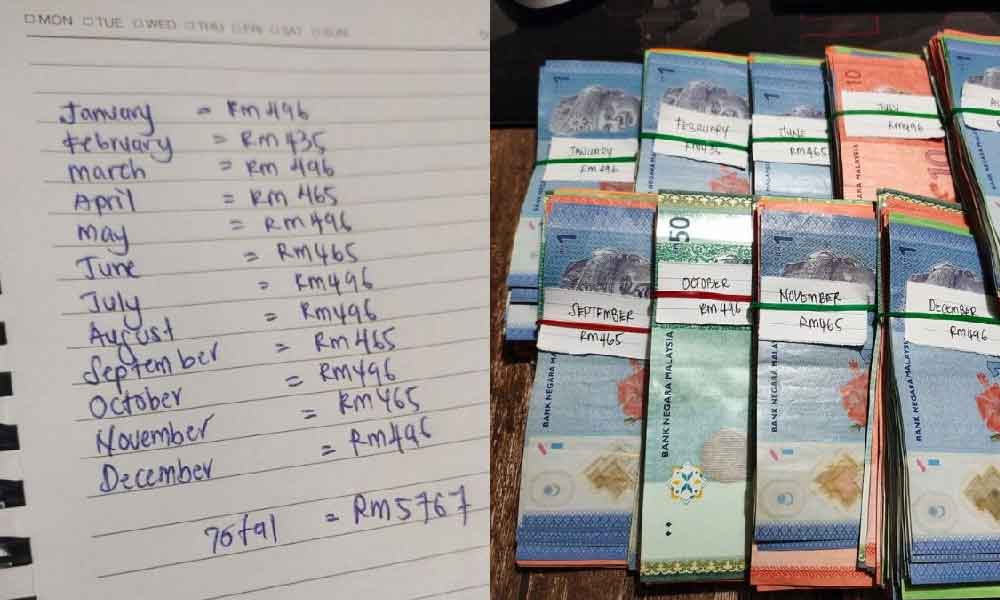 MON TUE WED THU FRI SAT SUN
January = Rm 496
February = Rm 435
march = Rm 496
April = Rm 465
may = Rm 496
June = Rm465
July = Rm496
August = Rm496
September = Rm465
October = Rm496
November = Rm465
December = Rm496
Total = Rm5767
1
JANUARY
RM 496
1
FEBRUARY
RM 435
1
JUNE
RM465
10
JULY
RM496
MALAYSIA
10
1
1
SEPTEMBER
RM465
BANK NEGARA MALAYSIA
50
OCTOBER
RM 496
BANK NEGARA MALAYSIA
1
NOVEMBER
RM465
BANK NEGARA MALAYSIA
1
DECEMBER
RM496
BANK NEGARA MALAYSIA